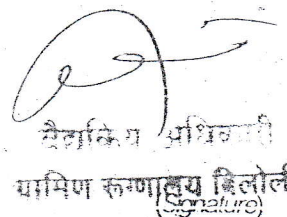 वैद्यकिय अधिकारी
ग्रामिण रूग्णालय बिलोली
(Signature)